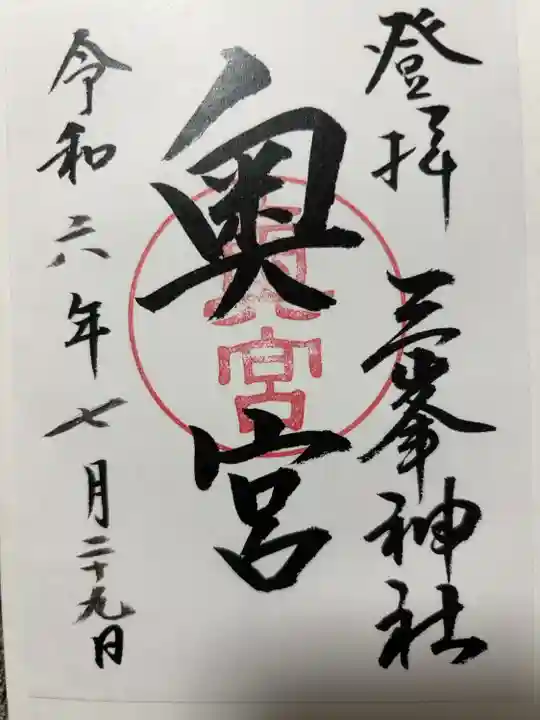 登拝 三峯神社
奥宮
奥宮
令和六年七月二十九日